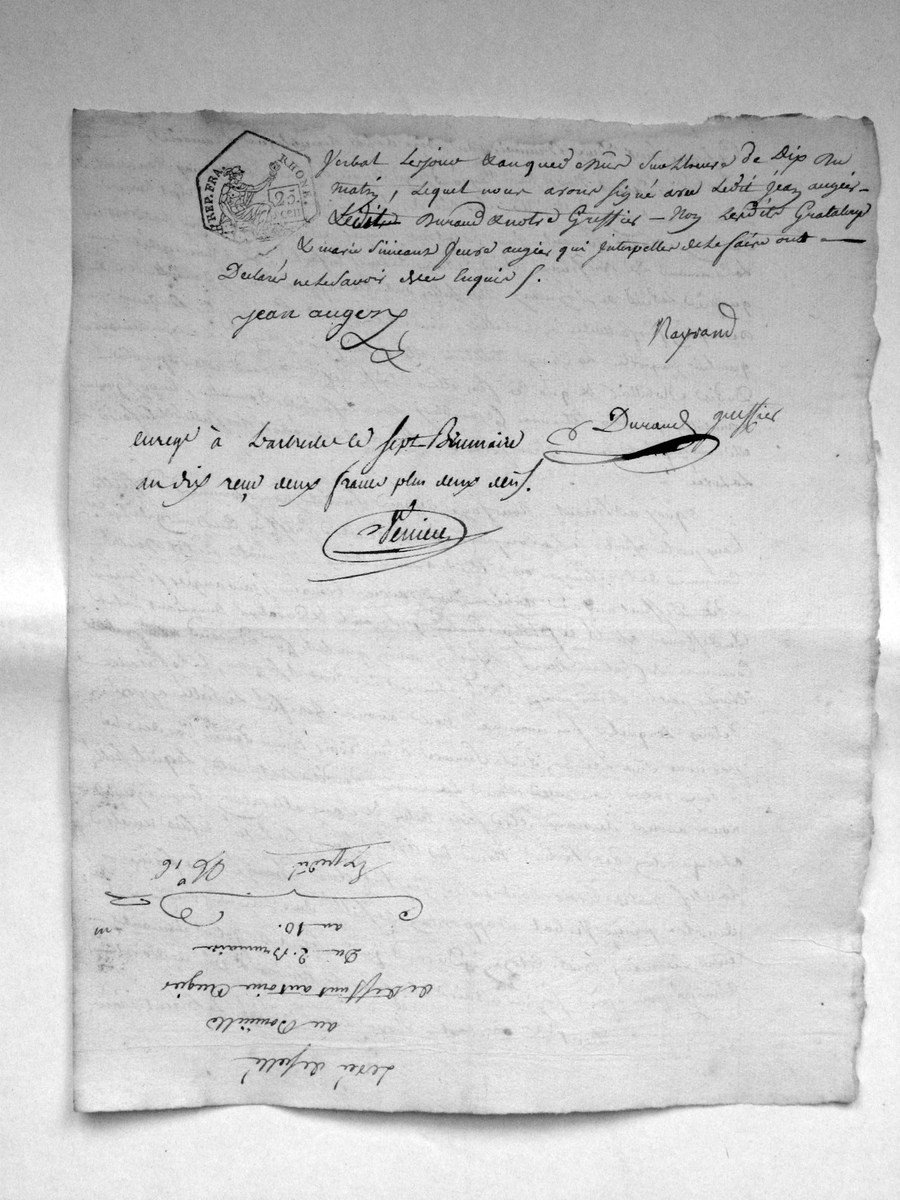 REP. FRA.
RHONE.
25.
cen
Verbal Lesjour & an que dessus sur l'heure de Dix Du
matin, Lequel nous avons signé avec Ledit Jean augier –
Durand & notre Greffier – Non Lesdits Grataloup
& marie Simeaux Veuve augier qui Interpellé de Le faire ont
Declaré ne le savoir de ce Enquis.
jean auger
Raynaud
Durand greffier
enregé à Larbresle le sept Brumaire
an dix reçu deux francs plus deux décs.
Perriere
Levée de scellé
au Domicille
de deffunt antoine Augier
Du 2. Brumaire
an 10.
Expedié
No 16